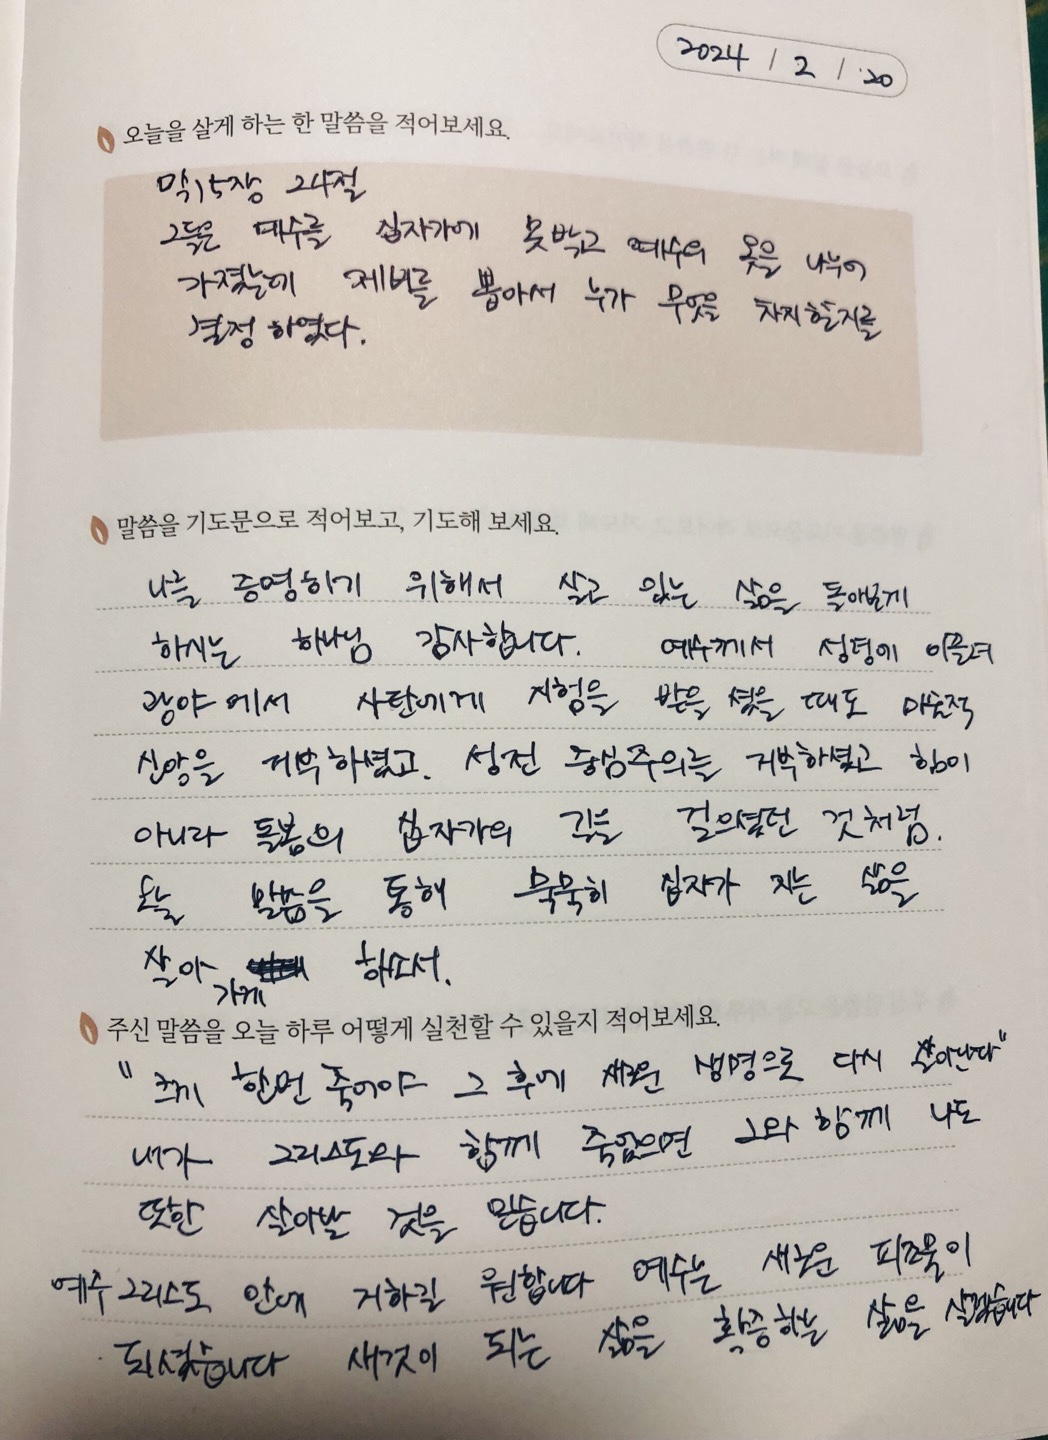 2024 / 2 / 20
오늘을 살게 하는 한 말씀을 적어보세요.
막15장 24절
그들은 예수를 십자가에 못박고 예수의 옷을 나누어
가졌는데 제비를 뽑아서 누가 무엇을 차지할지를
결정하였다.
말씀을 기도문으로 적어보고, 기도해 보세요.
나를 증명하기 위해서 살고 있는 삶을 돌아보게
하시는 하나님 감사합니다. 예수께서 성령에 이끌려
광야에서 사탄에게 시험을 받을 셨을 때도
신앙을 거부하셨고. 성전 중심주의를 거부하셨고 힘이
아니라 돌봄의 십자가의 길을 걸으셨던 것처럼.
오늘 말씀을 통해 묵묵히 십자가 지는 삶을
살아가게 하소서.
주신 말씀을 오늘 하루 어떻게 실천할 수 있을지 적어보세요.
" 한번 죽어야 그 후에 새로운 생명으로 다시 살아난다"
내가 그리스도와 함께 죽었으면 그와 함께 나도
또한 살아날 것을 믿습니다.
예수 그리스도 안에 거하길 원합니다 예수는 새로운 피조물이
되셨습니다 새것이 되는 삶을 확증하는 삶을 살겠습니다